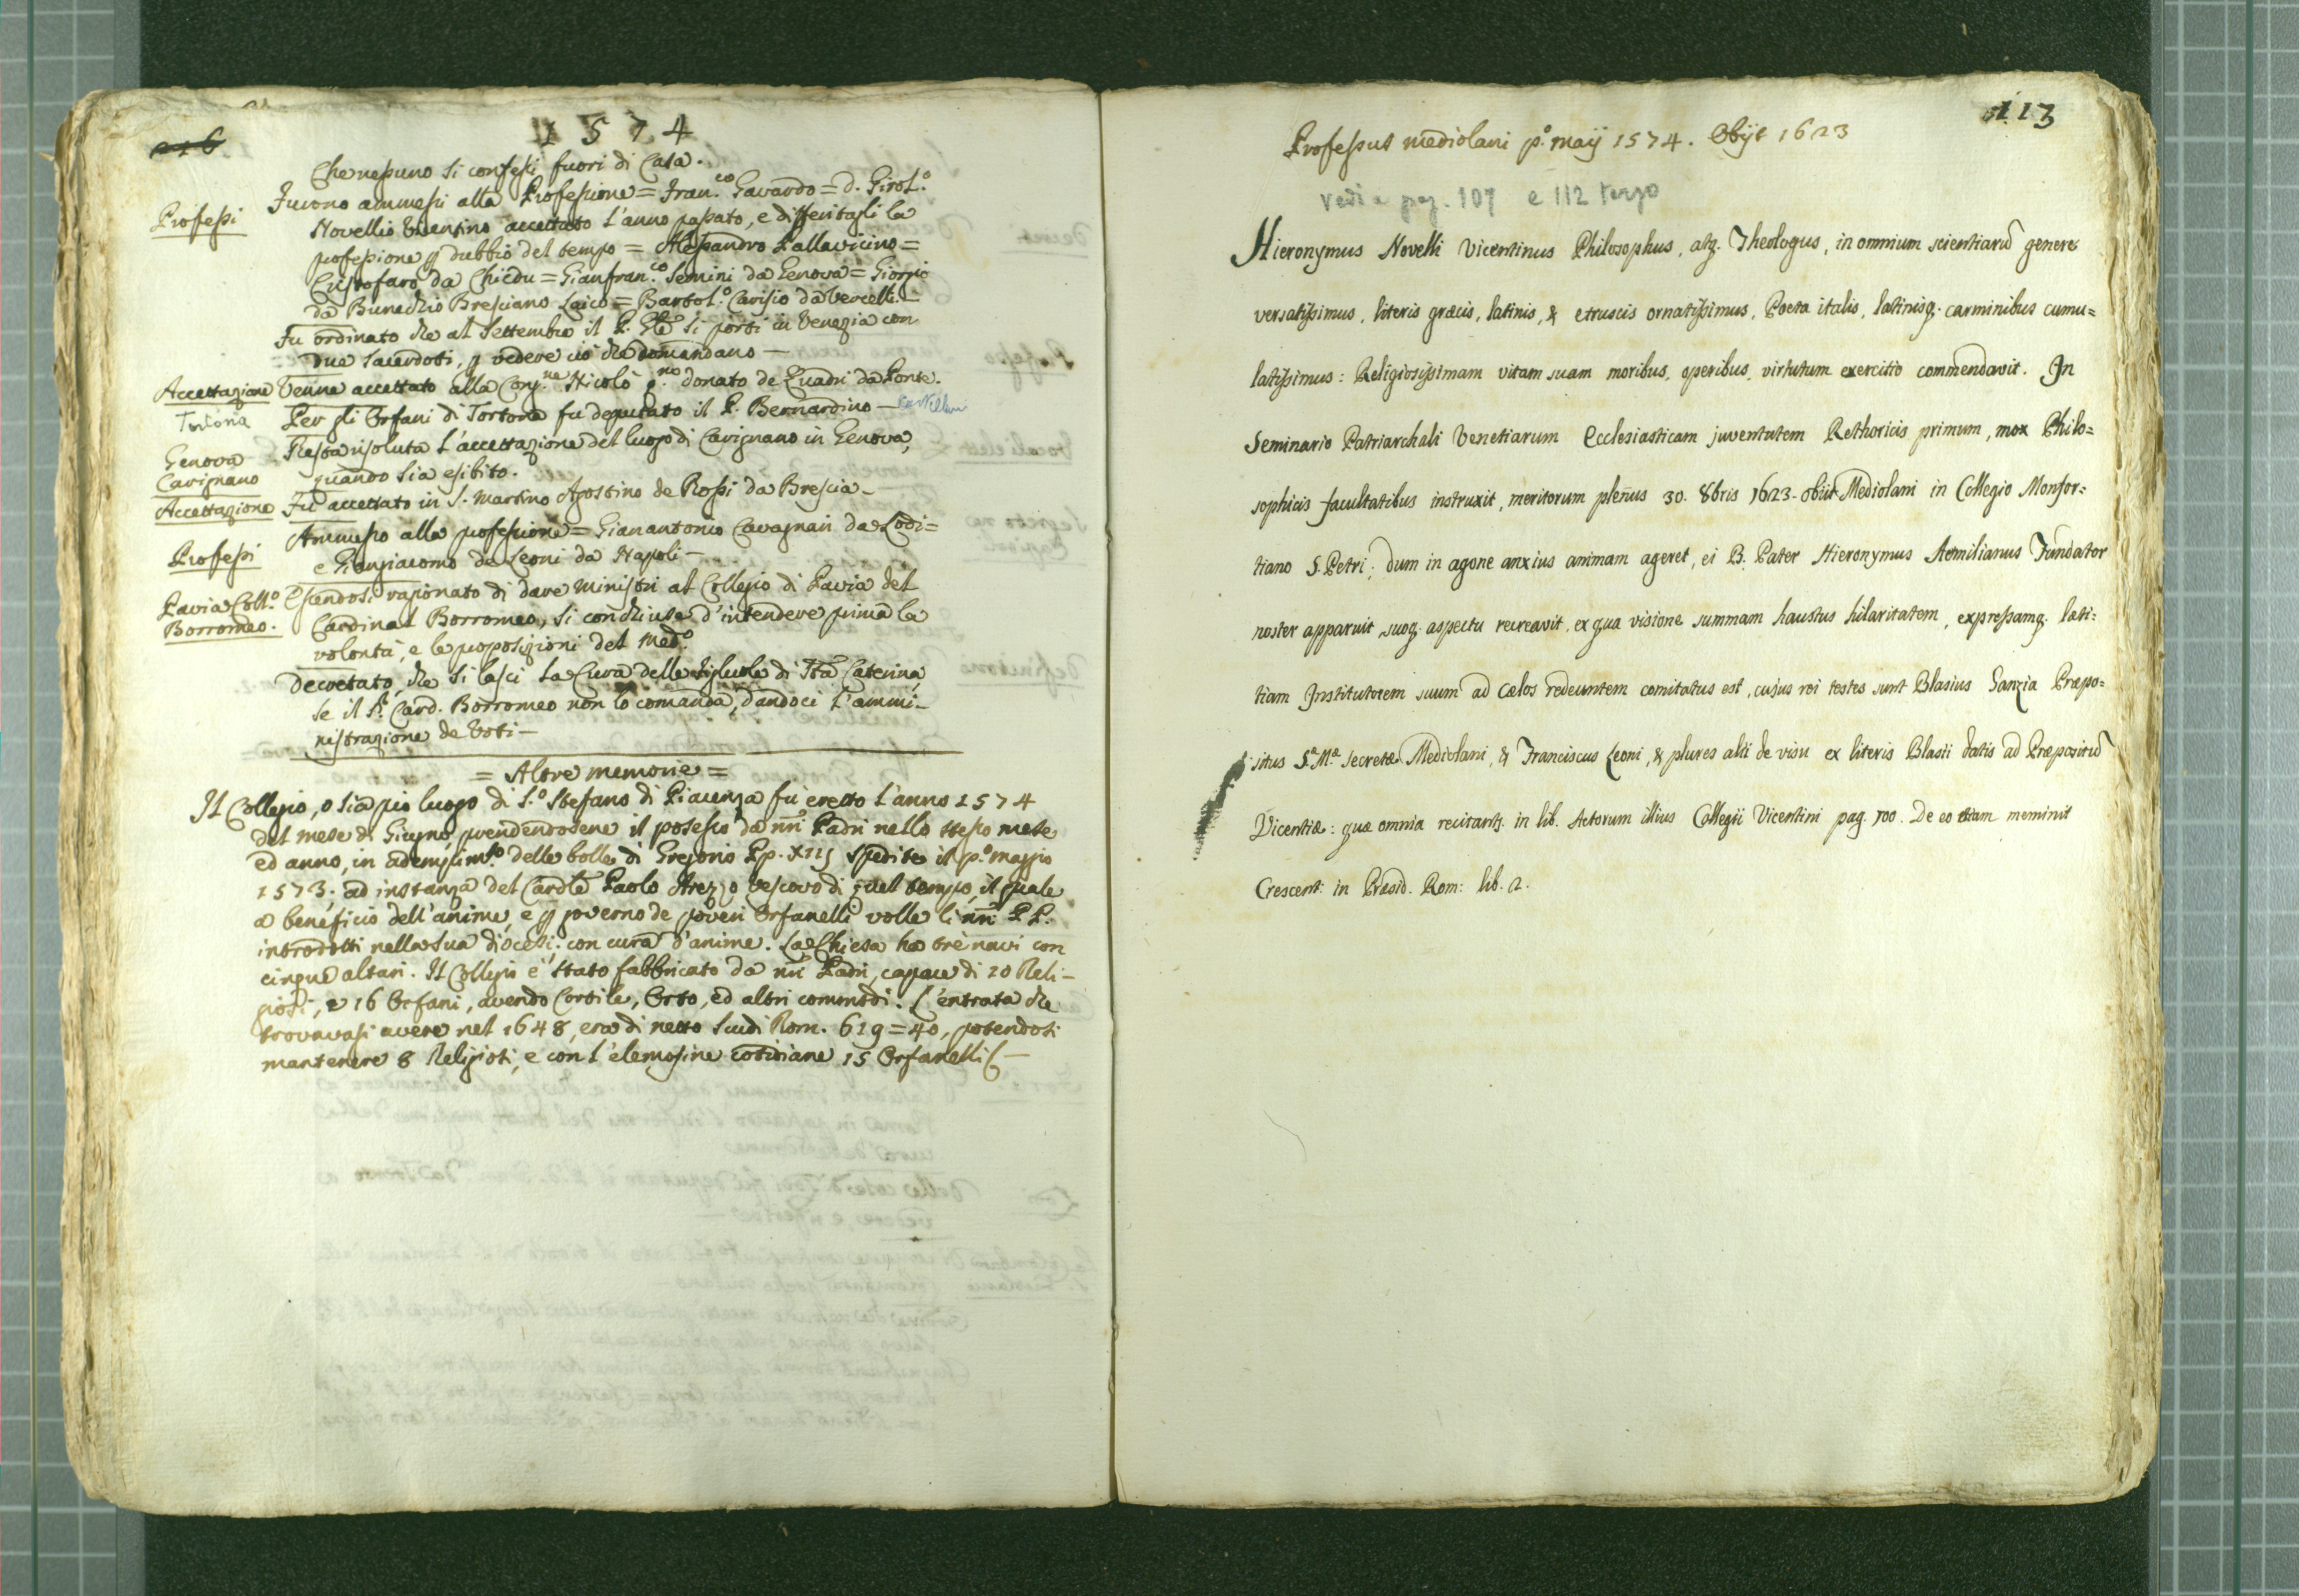 216
1574
Che nessuno si confessi fuori di Casa.
Professi
Furono ammessi alla Professione = Fran.co Gavardo = D. Girol.o
Novellio Vicentino accettato l'anno passato, e differitagli la
professione p dubbio del tempo = Alessandro Pallavicino =
Cristofaro da Chiedu = Gianfran.co Semini da Genova = Giorgio
da Bunedio Bresciano Laico = Bartol.o Carisio da Vercelli. —
Fu ordinato che al Settembre il P. Gle si porti in Venezia con
due Sacerdoti, p vedere ciò che domandano —
Accettazione
Venne accettato alla Cong.ne Nicolò q.m donato de Quadri da Ponte.
Tortona
Per gli Orfani di Tortona fu deputato il P. Bernardino — Castellani
Genova
Carignano
Resta risoluta l'accettazione del luogo di Carignano in Genova,
quando sia esibito.
Accettazione
Fu accettato in S. Martino Agostino de Rossi da Brescia —
Professi
Ammesso alla professione = Gianantonio Cavagnari da Lodi =
e Giangiacomo de Leoni da Napoli —
Pavia Coll.o
Borromeo.
Essendosi ragionato di dare Ministri al Collegio di Pavia del
Cardinal Borromeo, si conchiuse d'intendere prima la
volontà, e le proposizioni del Med.o
Decretato, che si lasci la Cura delle Figluole di Sta Caterina,
se il Sr. Card. Borromeo non lo comanda, dandoci l'ammi-
nistrazione de Voti —
= Altre memorie =
Il Collegio, o sia pio luogo di S.o Stefano di Piacenza fu eretto l'anno 1574
del mese di Giugno, prendendosene il possesso da nri Padri nello stesso mese
ed anno, in adempim.to delle bolle di Gregorio Pp. XIII spedite il p.o maggio
1573. ad instanza del Cardle Paolo Arezzo Vescovo di quel tempo, il quale
a beneficio dell'anime, e p governo de poveri Orfanelli volle li nri PP.
introdotti nella sua diocesi con cura d'anime. La Chiesa ha trè navi con
cinque altari. Il Collegio è stato fabbricato da nri Padri, capace di 20 Reli-
giosi, e 16 Orfani, avendo Cortile, Orto, ed altri commodi. L'entrata che
trovavasi avere nel 1648, era di netto Scudi Rom. 619 = 40, potendosi
mantenere 8 Religiosi, e con l'elemosine cotidiane 15 Orfanelli —
113
Professus mediolani p.o maij 1574. Obijt 1623
vedi a pag. 107 e 112 tergo
Hieronymus Novelli Vicentinus Philosophus, atq. Theologus, in omnium scientiarū genere
versatissimus, literis græcis, latinis, & etruscis ornatissimus, Poeta italis, latinisq. carminibus cumu=
latissimus: Religiosissimam vitam suam moribus, operibus, virtutum exercitio commendavit. In
Seminario Patriarchali Venetiarum Ecclesiasticam juventutem Rethoricis primum, mox Philo=
sophicis facultatibus instruxit, meritorum plenus 30. 8bris 1623. obiit Mediolani in Collegio Monfor=
tiano S. Petri; dum in agone anxius animam ageret, ei B. Pater Hieronymus Aemilianus Fundator
noster apparuit, suoq. aspectu recreavit, ex qua visione summam haustus hilaritatem, expressamq. læti=
tiam Institutorem suum ad cælos redeuntem comitatus est, cujus rei testes sunt Blasius Ganzia Præpo=
situs S.æ M.æ Secretæ Mediolani, & Franciscus Leoni, & plures alii de visu ex literis Blasii datis ad Præpositū
Vicentiæ: quæ omnia recitants. in lib. Actorum illius Collegii Vicentini pag. 100. De eo etiam meminit
Crescent: in Præsid. Rom: lib. 2.